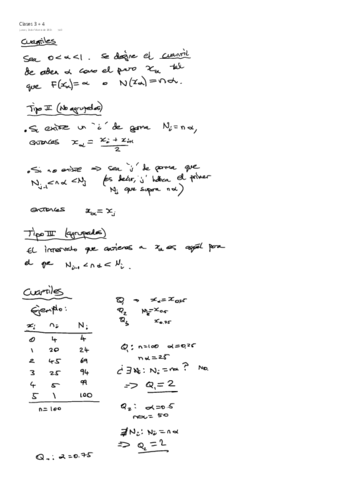 Clases 3 + 4
Cuantiles
Sea 0<α<1. Se define el cuantil
de orden α como el punto xα tal
que F(xα)=α o N(xα)=nα.
Tipo II (No agrupados)
• Si existe un "i" de forma Ni=nα,
entonces xα = (xi + xi+1)/2
• Si no existe → sea "j" de forma que
Nj-1<nα<Nj (es decir, j el primer
Nj que supera nα)
entonces xα = xj
Tipo III (agrupados)
El intervalo que contiene a xα es aquél para
el que Ni-1<nα<Ni.
Cuartiles
Ejemplo:
xi ni Ni
0 4 4
1 20 24
2 45 69
3 25 94
4 5 99
5 1 100
n=100
Q1 → xα=x0.25
Q2 x0.5
Q3 x0.75
Q1: n=100 α=0.25
nα=25
¿∃Ni: Ni=nα? No
⇒ Q1=2
Q2: α=0.5
nα=50
∄Ni: Ni=nα
⇒ Q2=2
Q3: α=0.75